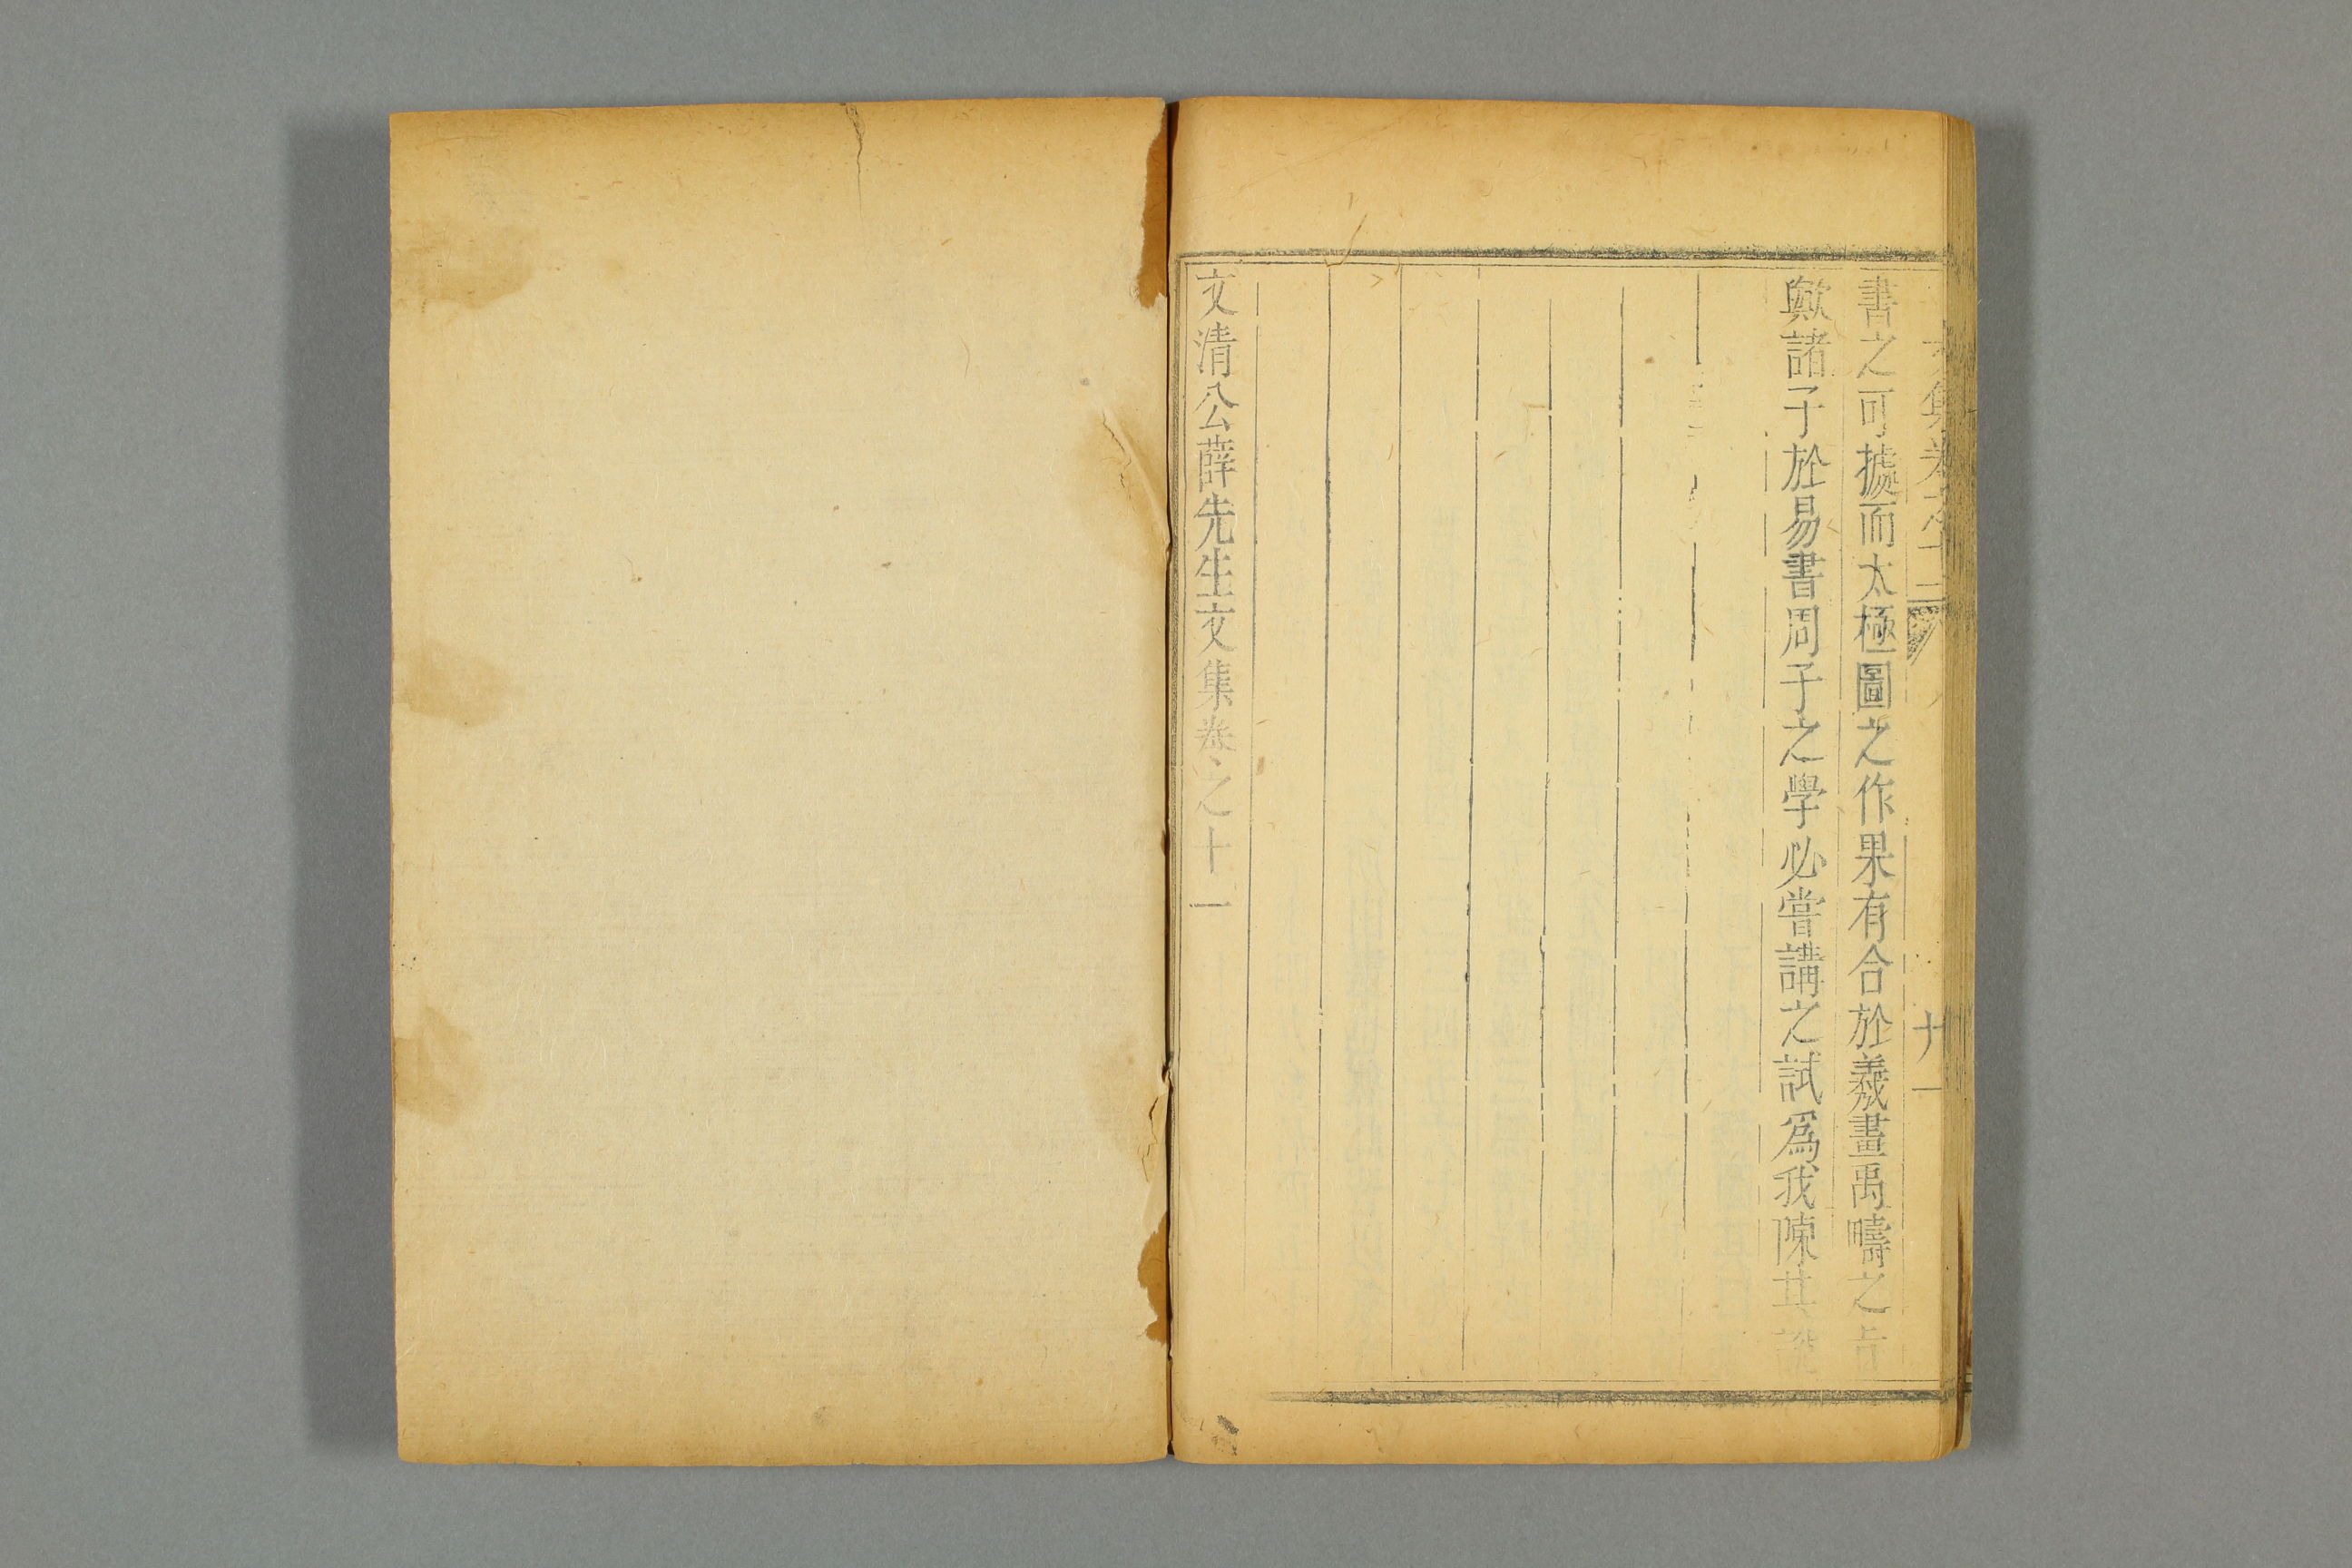 文集卷之十一
廿一
書之可據而太極圖之作果有合於羲畫禹疇之旨
歟諸子於易書周子之學必嘗講之試爲我陳其説
文清公薛先生文集卷之十一